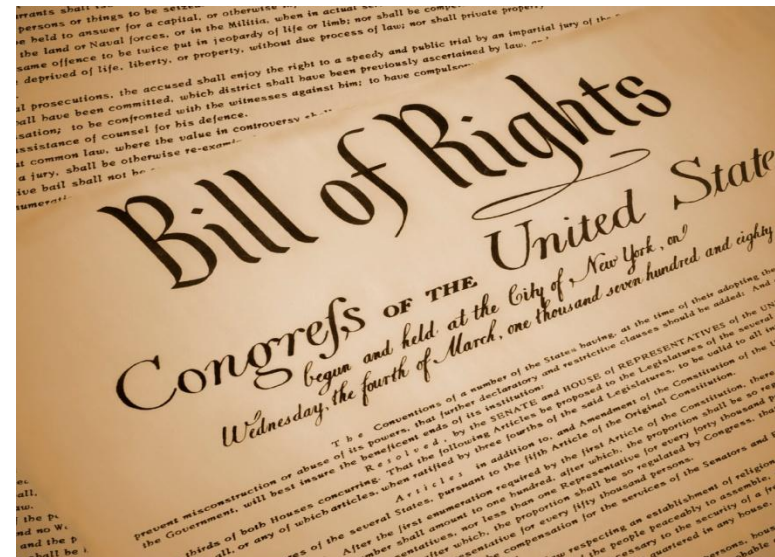 rrants shall
persons or things to be seized
be held to answer for a capital, or otherwise
the land or Naval forces, or in the Militia, when in actual
same offence to be twice put in jeopardy of life or limb; nor shall be
deprived of life, liberty, or property, without due process of law; nor shall private property
al prosecutions, the accused shall enjoy the right to a speedy and public trial by an impartial jury of the
all have been committed, which district shall have been previously ascertained by law,
sation; to be confronted with the witnesses against him; to have compulsory
assistance of counsel for his defence.
at common law, where the value in controversy shall
a jury, shall be otherwise re-exam
ive bail shall not be
numerat
Bill of Rights
Congreſs OF THE United State
begun and held at the City of New York, on
Wednesday, the fourth of March, one thousand seven hundred and eighty
The Conventions of a number of the States having, at the time of their adopting the
prevent misconstruction or abuse of its powers, that further declaratory and restrictive clauses should be added: And
the Government, will best insure the beneficent ends of its institution:
Resolved, by the SENATE and HOUSE of REPRESENTATIVES of the UN
thirds of both Houses concurring. That the following Articles be proposed to the Legislatures of the several
all, or any of which articles, when ratified by three fourths of the said Legislatures, to be valid to all in
Articles in addition to, and Amendment of the Constitution of the U
es of the several States, pursuant to the fifth Article of the Original Constitution.
After the first enumeration required by the first Article of the Constitution, there
mber shall amount to one hundred, after which, the proportion shall be so reg
entatives, nor less than one Representative for every forty thousand p
after which, the proportion shall be so regulated by Congress, tha
sentative for every fifty thousand persons.
the compensation for the services of the Senators and
respecting an establishment of religion
the people peaceably to assemble,
ssary to the security of a fr
quartered in any house,
ons, hou